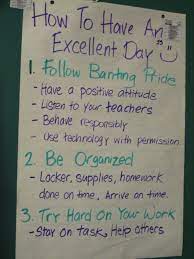 How To Have An
Excellent Day
1. Follow Banting Pride
- Have a positive attitude
- Listen to your teachers
- Behave responsibly
- Use technology with permission.
2. Be Organized
- Locker, supplies, homework
done on time, Arrive on time.
3. Try Hard On Your Work
- Stay on task, Help others